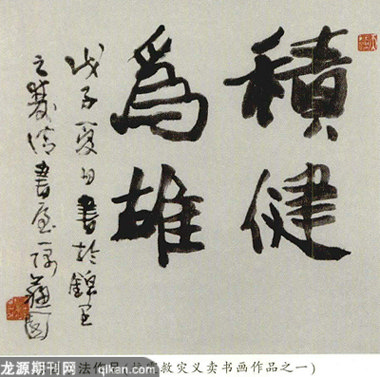 積健
為雄
戊子夏日書於錦里
之
書屋
法作品(抗震救灾义卖书画作品之一)
龙源期刊网
qikan.com